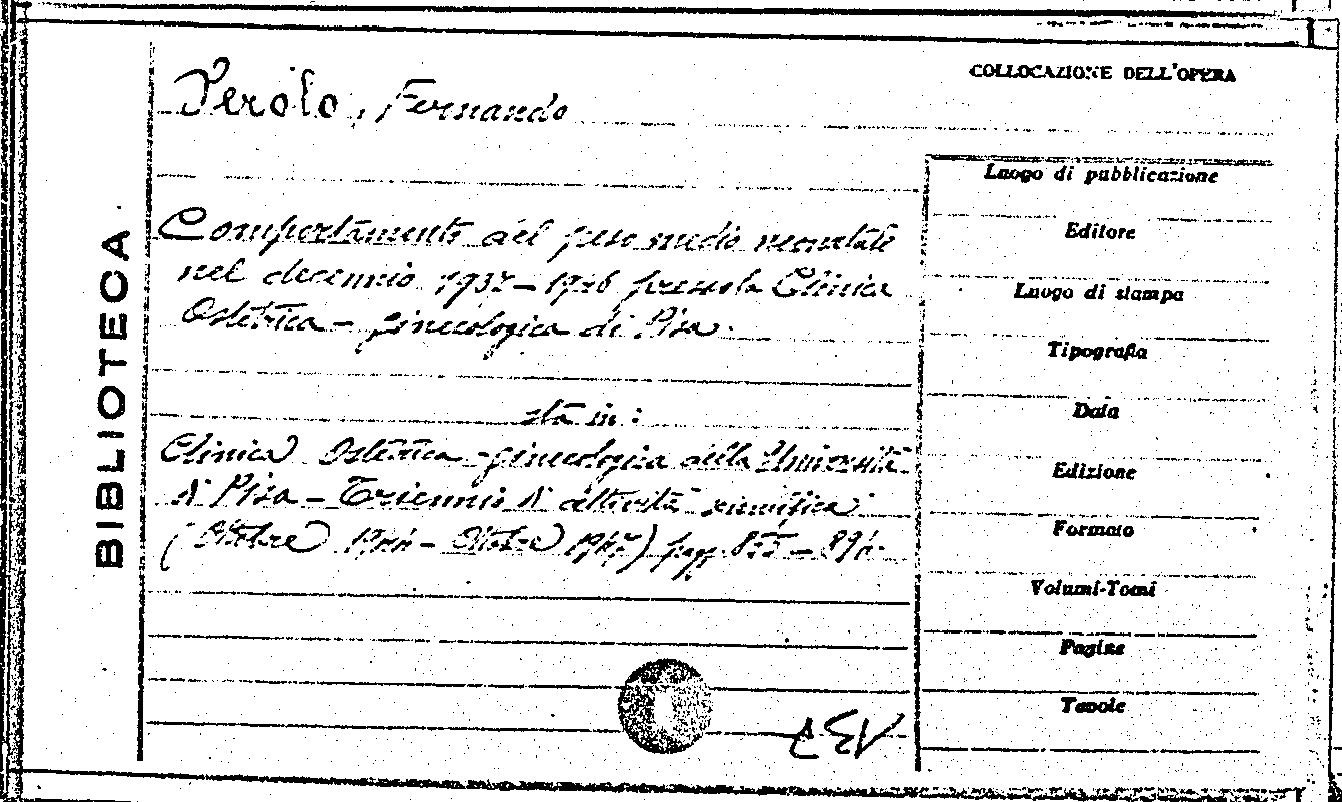 COLLOCAZIONE DELL'OPERA
Perolo, Fernando
Luogo di pubblicazione
Editore
Luogo di stampa
Tipografia
Data
Edizione
Formato
Volumi-Tomi
Pagine
Tavole
BIBLIOTECA
Comportamento del peso medio neonatale
nel decennio 1937-1946 presso la Clinica
Ostetrica-ginecologica di Pisa.
sta in:
Clinica Ostetrica-ginecologica della Università
di Pisa - Triennio di attività scientifica
(Ottobre 1944 - Ottobre 1947) pagg.